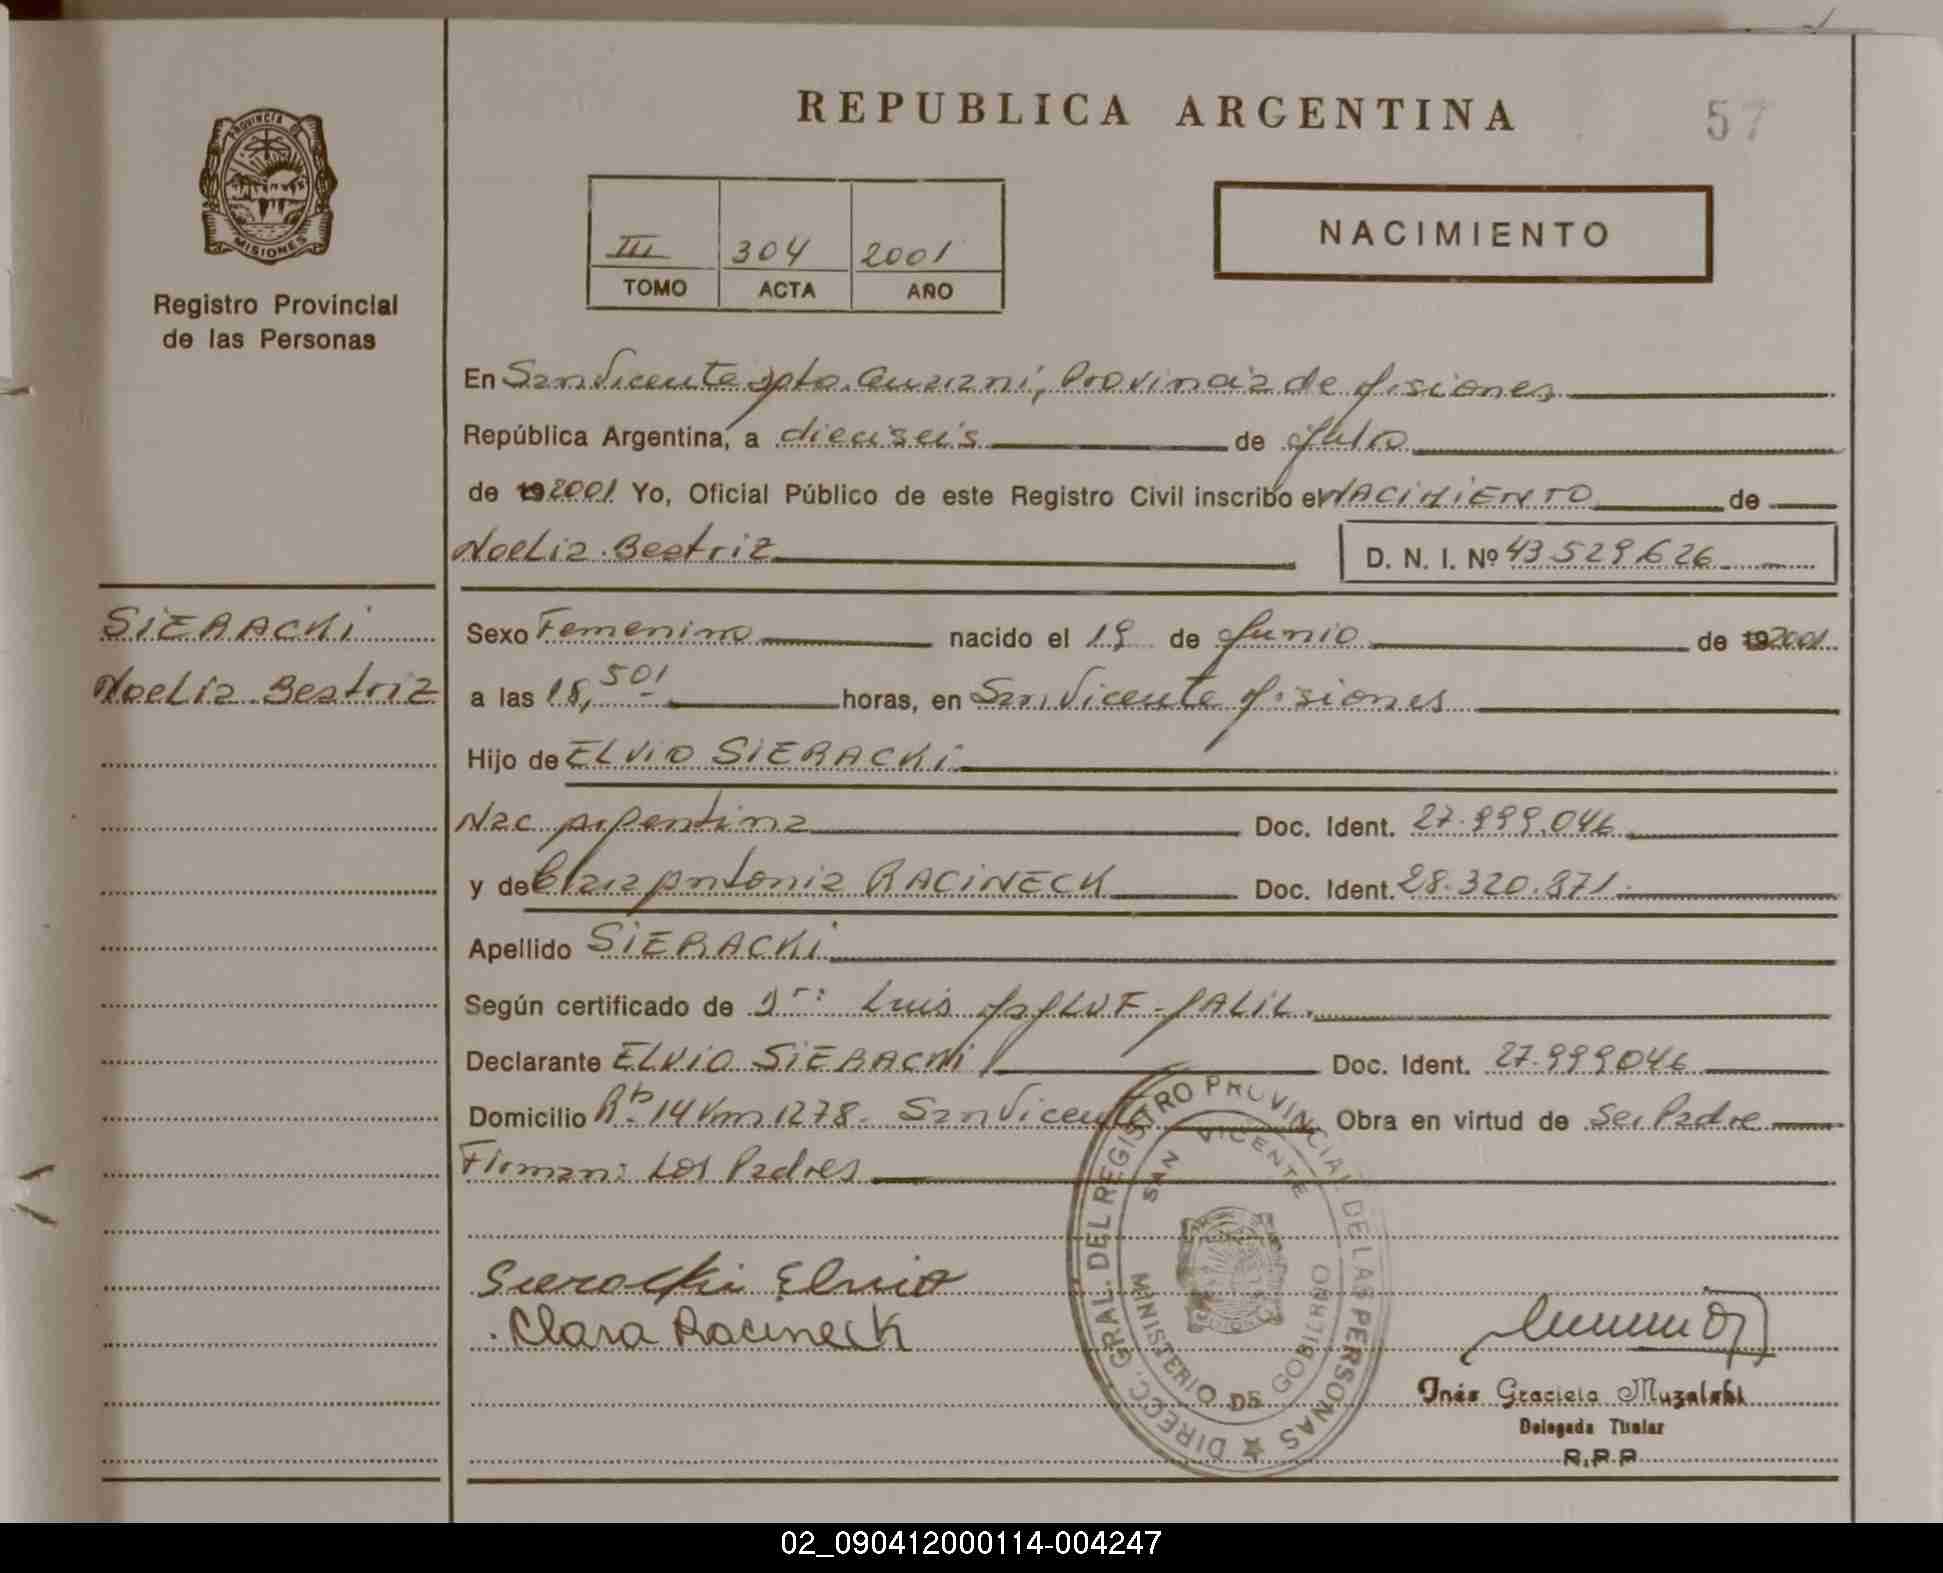 REPUBLICA ARGENTINA
57
PROVINCIA DE
MISIONES
Registro Provincial
de las Personas
III 304 2001
TOMO ACTA AÑO
NACIMIENTO
En San Vicente Dpto. Guarani, Provincia de Misiones
República Argentina, a dieciseis de Julio
de 192001 Yo, Oficial Público de este Registro Civil inscribo el NACIMIENTO de
Noelia Beatriz
D. N. I. Nº 43.529.626
SIERACKI
Noelia Beatriz
Sexo Femenino nacido el 19 de Junio de 192001
a las 18,501 horas, en San Vicente Misiones
Hijo de ELVIO SIERACKI
Nac Argentina Doc. Ident. 27.999.046
y de Clara Antonia RACINECK Doc. Ident. 28.320.871
Apellido SIERACKI
Según certificado de Dr: Luis JALIL
Declarante ELVIO SIERACKI Doc. Ident. 27.999046
Domicilio Rta 14 Km 1278- San Vicente Obra en virtud de Ser Padre
Firman: Los Padres
Sieracki Elvio
Clara Racineck
DIRECC. GRAL. DEL REGISTRO PROVINCIAL DE LAS PERSONAS
SAN VICENTE
MINISTERIO DE GOBIERNO
Inés Graciela Muzalski
Delegada Titular
R.P.P
02_090412000114-004247